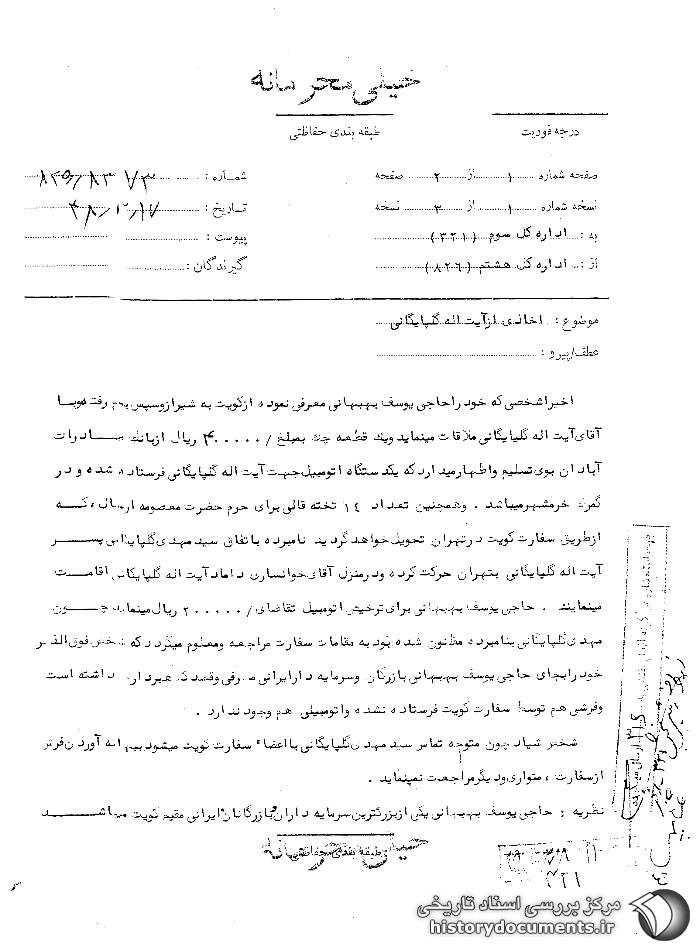 خیلی محرمانه
درجه فوریت
طبقه بندی حفاظتی
صفحه شماره ۱ از ۲ صفحه
شماره :
نسخه شماره ۱ از ۳ نسخه
تاریخ : ۴۸/۲/۱۷
به : اداره کل سوم (۳۲۱)
پیوست :
از : اداره کل هشتم (۸۲۶)
گیرندگان :
موضوع : اخاذی از آیت اله گلپایگانی
عطف/پیرو :
اخیرا شخصی که خود را حاجی یوسف بهبهانی معرفی نموده از کویت به شیراز و سپس بقم رفته و با
آقای آیت اله گلپایگانی ملاقات مینماید و یک قطعه چک بمبلغ /۴۰۰۰۰۰ ریال از بانک صادرات
آبادان بوی تسلیم و اظهار میدارد که یکدستگاه اتومبیل جهت آیت اله گلپایگانی فرستاده شده و در
گمرک خرمشهر میباشد . و همچنین تعداد ۱٤ تخته قالی برای حرم حضرت معصومه ارسال ، که
از طریق سفارت کویت در تهران تحویل خواهد گردید نامبرده باتفاق سید مهدی گلپایگانی پسر
آیت اله گلپایگانی بتهران حرکت کرده و در منزل آقای خوانساری داماد آیت اله گلپایگانی اقامت
مینمایند . حاجی یوسف بهبهانی برای ترخیص اتومبیل تقاضای /۲۰۰۰۰۰ ریال مینماید چون
مهدی گلپایگانی بنامبرده مظنون شده بود به مقامات سفارت مراجعه و معلوم میگردد که شخص فوق الذکر
خود را بجای حاجی یوسف بهبهانی بازرگان و سرمایه دار ایرانی معرفی و قصد کلاهبرداری داشته است
و فرشی هم توسط سفارت کویت فرستاده نشده و اتومبیلی هم وجود ندارد .
شخص شیاد چون متوجه تماس سید مهدی گلپایگانی با اعضاء سفارت کویت میشود ببهانه آوردن فرش
از سفارت ، متواری و دیگر مراجعت نمینماید .
نظریه : حاجی یوسف بهبهانی یکی از بزرگترین سرمایه داران و بازرگانان ایرانی مقیم کویت میباشد
خیلی محرمانه
طبقه بندی حفاظتی
۳۲۱
مرکز بررسی اسناد تاریخی
historydocuments.ir